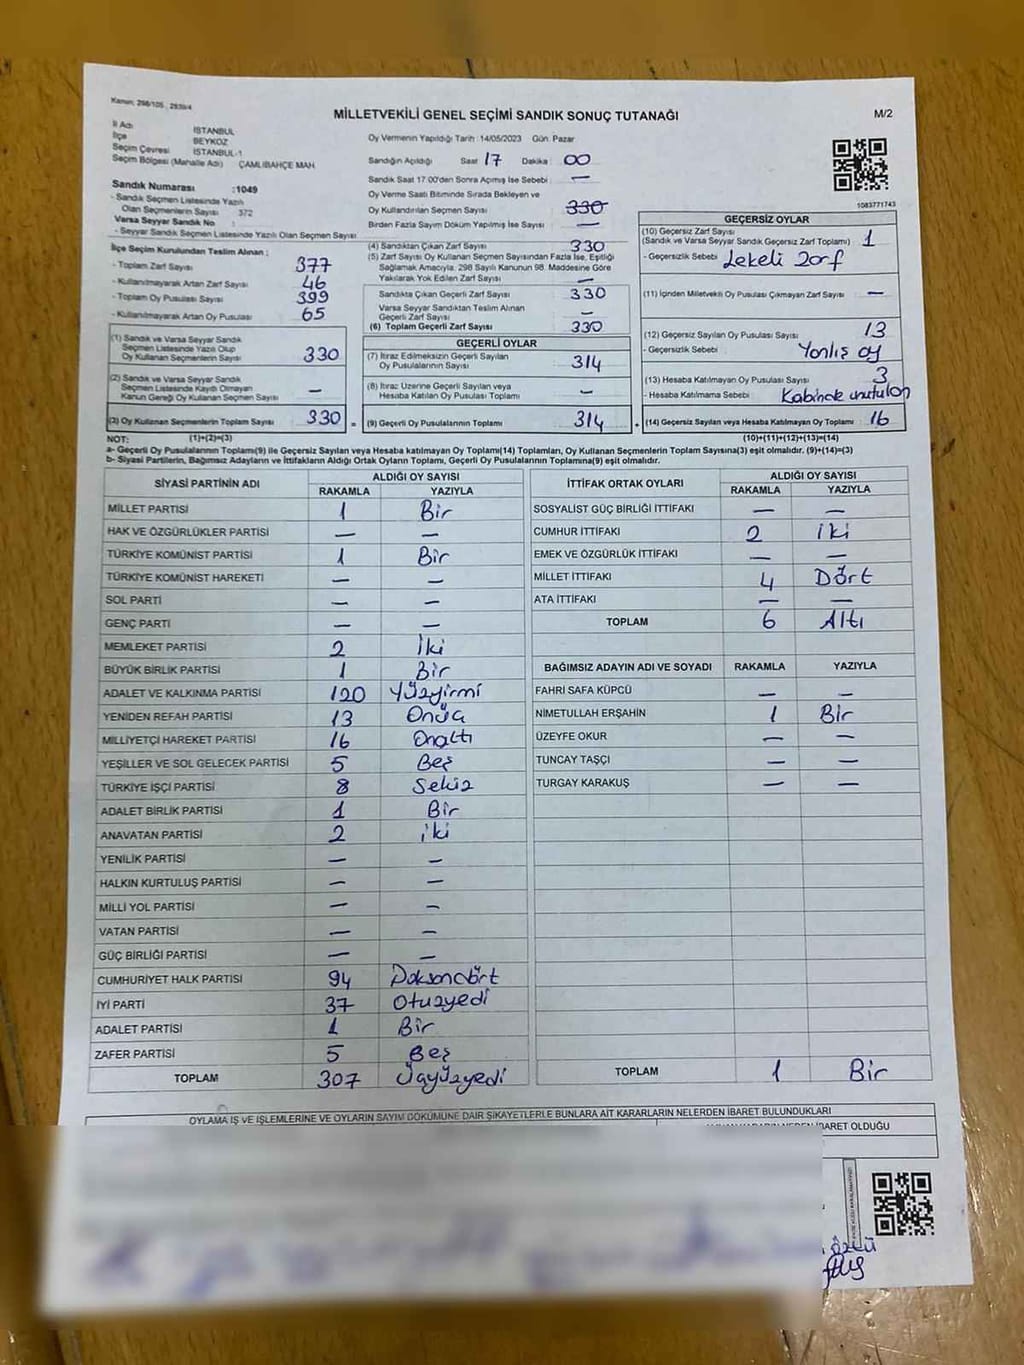 Kanun: 298/105, 2839/4
MİLLETVEKİLİ GENEL SEÇİMİ SANDIK SONUÇ TUTANAĞI
M/2
İl Adı İSTANBUL
İlçe BEYKOZ
Seçim Çevresi İSTANBUL-1
Seçim Bölgesi (Mahalle Adı) ÇAMLIBAHÇE MAH
Sandık Numarası :1049
- Sandık Seçmen Listesinde Yazılı
Olan Seçmenlerin Sayısı 372
Varsa Seyyar Sandık No :
- Seyyar Sandık Seçmen Listesinde Yazılı Olan Seçmen Sayısı
İlçe Seçim Kurulundan Teslim Alınan :
- Toplam Zarf Sayısı 377
- Kullanılmayarak Artan Zarf Sayısı 46
- Toplam Oy Pusulası Sayısı 399
- Kullanılmayarak Artan Oy Pusulası 65
(1) Sandık ve Varsa Seyyar Sandık
Seçmen Listesinde Yazılı Olup
Oy Kullanan Seçmenlerin Sayısı 330
(2) Sandık ve Varsa Seyyar Sandık
Seçmen Listesinde Kaydı Olmayan
Kanun Gereği Oy Kullanan Seçmen Sayısı —
(3) Oy Kullanan Seçmenlerin Toplam Sayısı 330 =
Oy Vermenin Yapıldığı Tarih :14/05/2023 Gün: Pazar
Sandığın Açıldığı Saat 17 Dakika : 00
Sandık Saat 17.00'den Sonra Açılmış İse Sebebi : —
Oy Verme Saati Bitiminde Sırada Bekleyen ve
Oy Kullandırılan Seçmen Sayısı : 330
Birden Fazla Sayım Döküm Yapılmış İse Sayısı : —
(4) Sandıktan Çıkan Zarf Sayısı 330
(5) Zarf Sayısı Oy Kullanan Seçmen Sayısından Fazla İse, Eşitliği
Sağlamak Amacıyla, 298 Sayılı Kanunun 98. Maddesine Göre
Yakılarak Yok Edilen Zarf Sayısı —
Sandıkta Çıkan Geçerli Zarf Sayısı 330
Varsa Seyyar Sandıktan Teslim Alınan
Geçerli Zarf Sayısı —
(6) Toplam Geçerli Zarf Sayısı 330
GEÇERLİ OYLAR
(7) İtiraz Edilmeksizin Geçerli Sayılan
Oy Pusulalarının Sayısı 314
(8) İtiraz Üzerine Geçerli Sayılan veya
Hesaba Katılan Oy Pusulası Toplamı —
(9) Geçerli Oy Pusulalarının Toplamı 314 +
1083771743
GEÇERSİZ OYLAR
(10) Geçersiz Zarf Sayısı
(Sandık ve Varsa Seyyar Sandık Geçersiz Zarf Toplamı) 1
- Geçersizlik Sebebi : Lekeli zarf
(11) İçinden Milletvekili Oy Pusulası Çıkmayan Zarf Sayısı —
(12) Geçersiz Sayılan Oy Pusulası Sayısı 13
- Geçersizlik Sebebi : Yanlış oy
(13) Hesaba Katılmayan Oy Pusulası Sayısı 3
- Hesaba Katılmama Sebebi : Kabinde unutulan
(14) Geçersiz Sayılan veya Hesaba Katılmayan Oy Toplamı 16
NOT: (1)+(2)=(3) (10)+(11)+(12)+(13)=(14)
a- Geçerli Oy Pusulalarının Toplamı(9) ile Geçersiz Sayılan veya Hesaba katılmayan Oy Toplamı(14) Toplamları, Oy Kullanan Seçmenlerin Toplam Sayısına(3) eşit olmalıdır. (9)+(14)=(3)
b- Siyasi Partilerin, Bağımsız Adayların ve İttifakların Aldığı Ortak Oyların Toplamı, Geçerli Oy Pusulalarının Toplamına(9) eşit olmalıdır.
SİYASİ PARTİNİN ADI ALDIĞI OY SAYISI
RAKAMLA YAZIYLA
MİLLET PARTİSİ 1 Bir
HAK VE ÖZGÜRLÜKLER PARTİSİ — —
TÜRKİYE KOMÜNİST PARTİSİ 1 Bir
TÜRKİYE KOMÜNİST HAREKETİ — —
SOL PARTİ — —
GENÇ PARTİ — —
MEMLEKET PARTİSİ 2 İki
BÜYÜK BİRLİK PARTİSİ 1 Bir
ADALET VE KALKINMA PARTİSİ 120 Yüzyirmi
YENİDEN REFAH PARTİSİ 13 Onüç
MİLLİYETÇİ HAREKET PARTİSİ 16 Onaltı
YEŞİLLER VE SOL GELECEK PARTİSİ 5 Beş
TÜRKİYE İŞÇİ PARTİSİ 8 Sekiz
ADALET BİRLİK PARTİSİ 1 Bir
ANAVATAN PARTİSİ 2 iki
YENİLİK PARTİSİ — —
HALKIN KURTULUŞ PARTİSİ — —
MİLLİ YOL PARTİSİ — —
VATAN PARTİSİ — —
GÜÇ BİRLİĞİ PARTİSİ — —
CUMHURİYET HALK PARTİSİ 94 Doksandört
İYİ PARTİ 37 Otuzyedi
ADALET PARTİSİ 1 Bir
ZAFER PARTİSİ 5 Beş
TOPLAM 307 Üçyüzyedi
İTTİFAK ORTAK OYLARI ALDIĞI OY SAYISI
RAKAMLA YAZIYLA
SOSYALİST GÜÇ BİRLİĞİ İTTİFAKI — —
CUMHUR İTTİFAKI 2 İki
EMEK VE ÖZGÜRLÜK İTTİFAKI — —
MİLLET İTTİFAKI 4 Dört
ATA İTTİFAKI — —
TOPLAM 6 Altı
BAĞIMSIZ ADAYIN ADI VE SOYADI RAKAMLA YAZIYLA
FAHRİ SAFA KÜPCÜ — —
NİMETULLAH ERŞAHİN 1 Bir
ÜZEYFE OKUR — —
TUNCAY TAŞÇI — —
TURGAY KARAKUŞ — —
TOPLAM 1 Bir
OYLAMA İŞ VE İŞLEMLERİNE VE OYLARIN SAYIM DÖKÜMÜNE DAİR ŞİKAYETLERLE BUNLARA AİT KARARLARIN NELERDEN İBARET BULUNDUKLARI
İBARET OLDUĞU